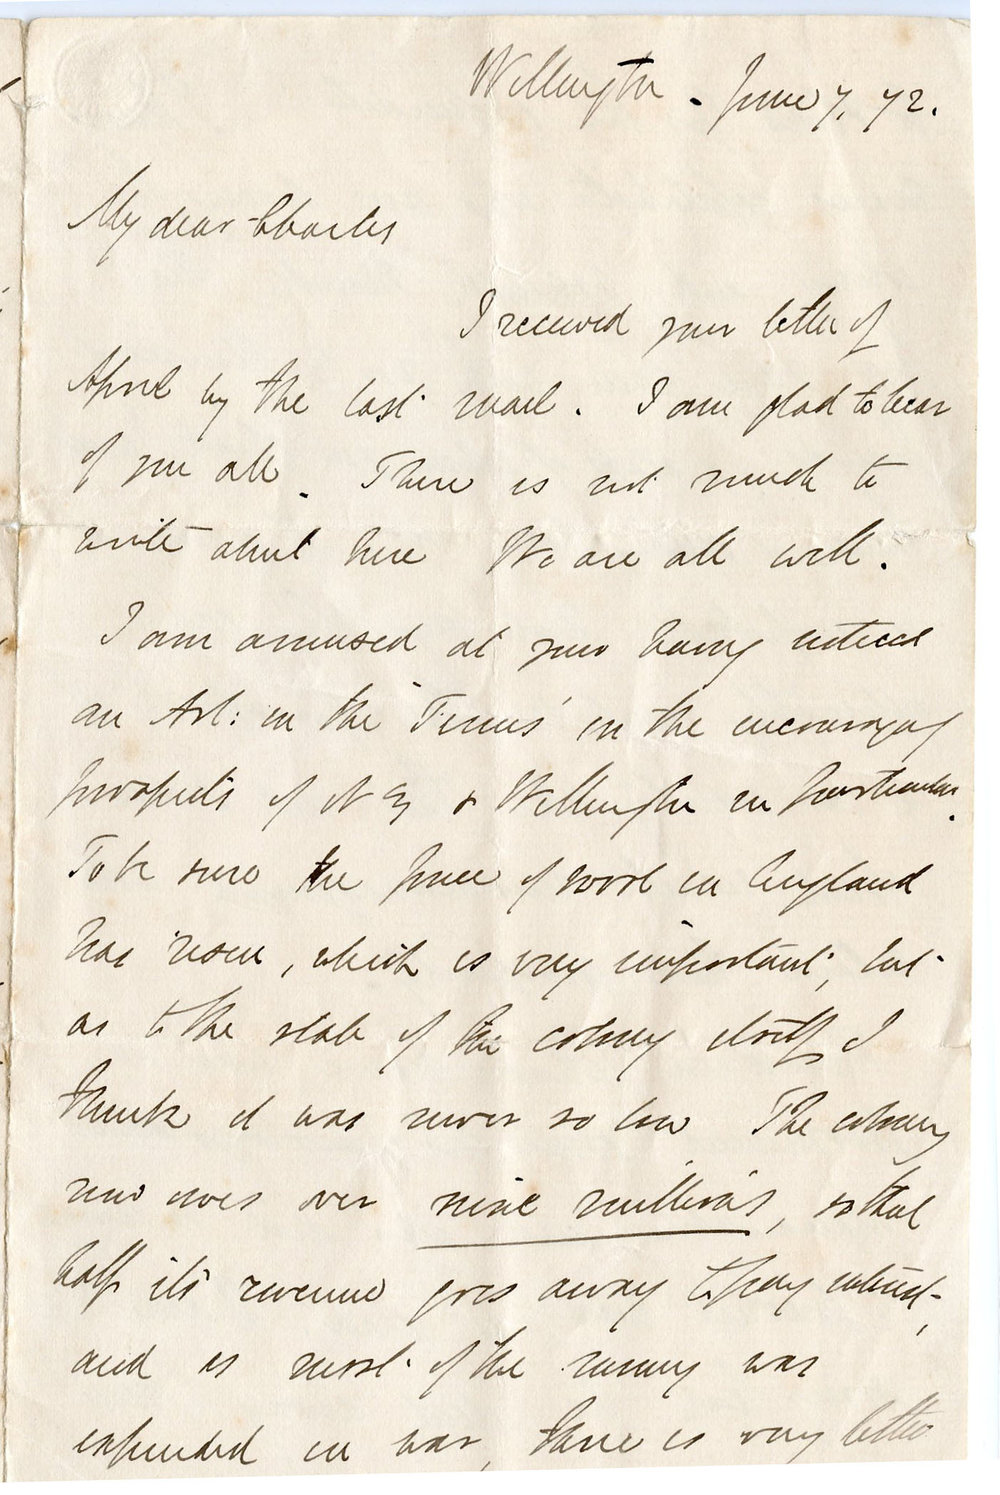 Wellington - June 7, 72.
My dear Charles
I received your letter of
April by the last mail. I am glad to hear
of you all. There is not much to
write about here We are all well.
I am amused at your having noticed
an Art: in the 'Times' on the encouraging
prospects of N Z & Wellington in particular.
To be sure the price of wool in England
has risen, which is very important, but
as to the state of the colony itself I
think it was never so low The colony
now owes over nine millions, so that
half its revenue goes away to pay interest,
and as most of the money was
expended in war, there is very little